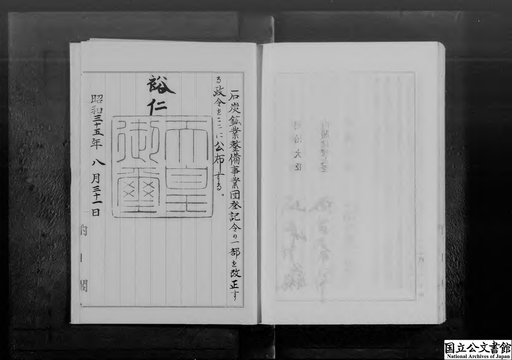 石炭鉱業整備事業団登記令の一部を改正す
る政令をここに公布する。
裕仁
天皇
御璽
昭和三十五年八月三十一日
内閣
国立公文書館
National Archives of Japan